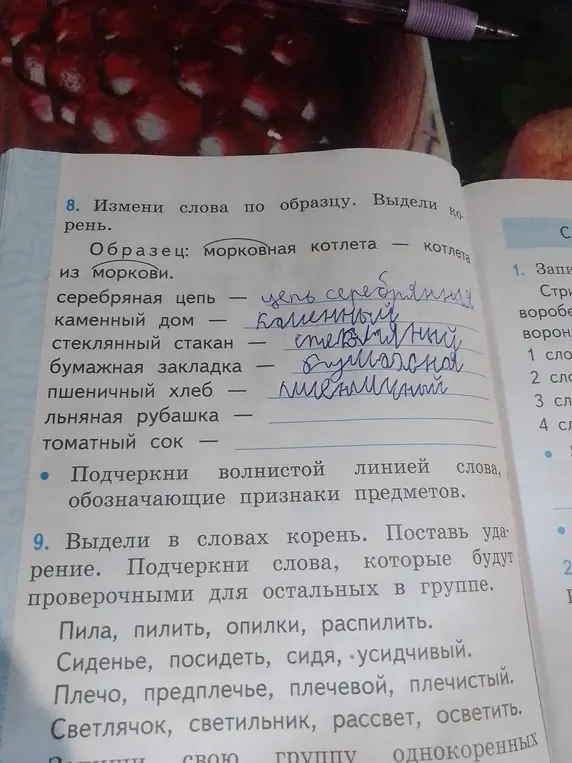 8. Измени слова по образцу. Выдели ко-
рень.
Образец: морковная котлета — котлета
из моркови.
серебряная цепь — цепь серебряная
каменный дом — каменный
стеклянный стакан — стеклянный
бумажная закладка — бумажная
пшеничный хлеб — пшеничный
льняная рубашка —
томатный сок —
• Подчеркни волнистой линией слова,
обозначающие признаки предметов.
9. Выдели в словах корень. Поставь уда-
рение. Подчеркни слова, которые будут
проверочными для остальных в группе.
Пила, пилить, опилки, распилить.
Сиденье, посидеть, сидя, усидчивый.
Плечо, предплечье, плечевой, плечистый.
Светлячок, светильник, рассвет, осветить.
свою группу однокоренных
С
1. Запи
Стри
воробе
ворон
1 сло
2 сло
3 сл
4 сл
2